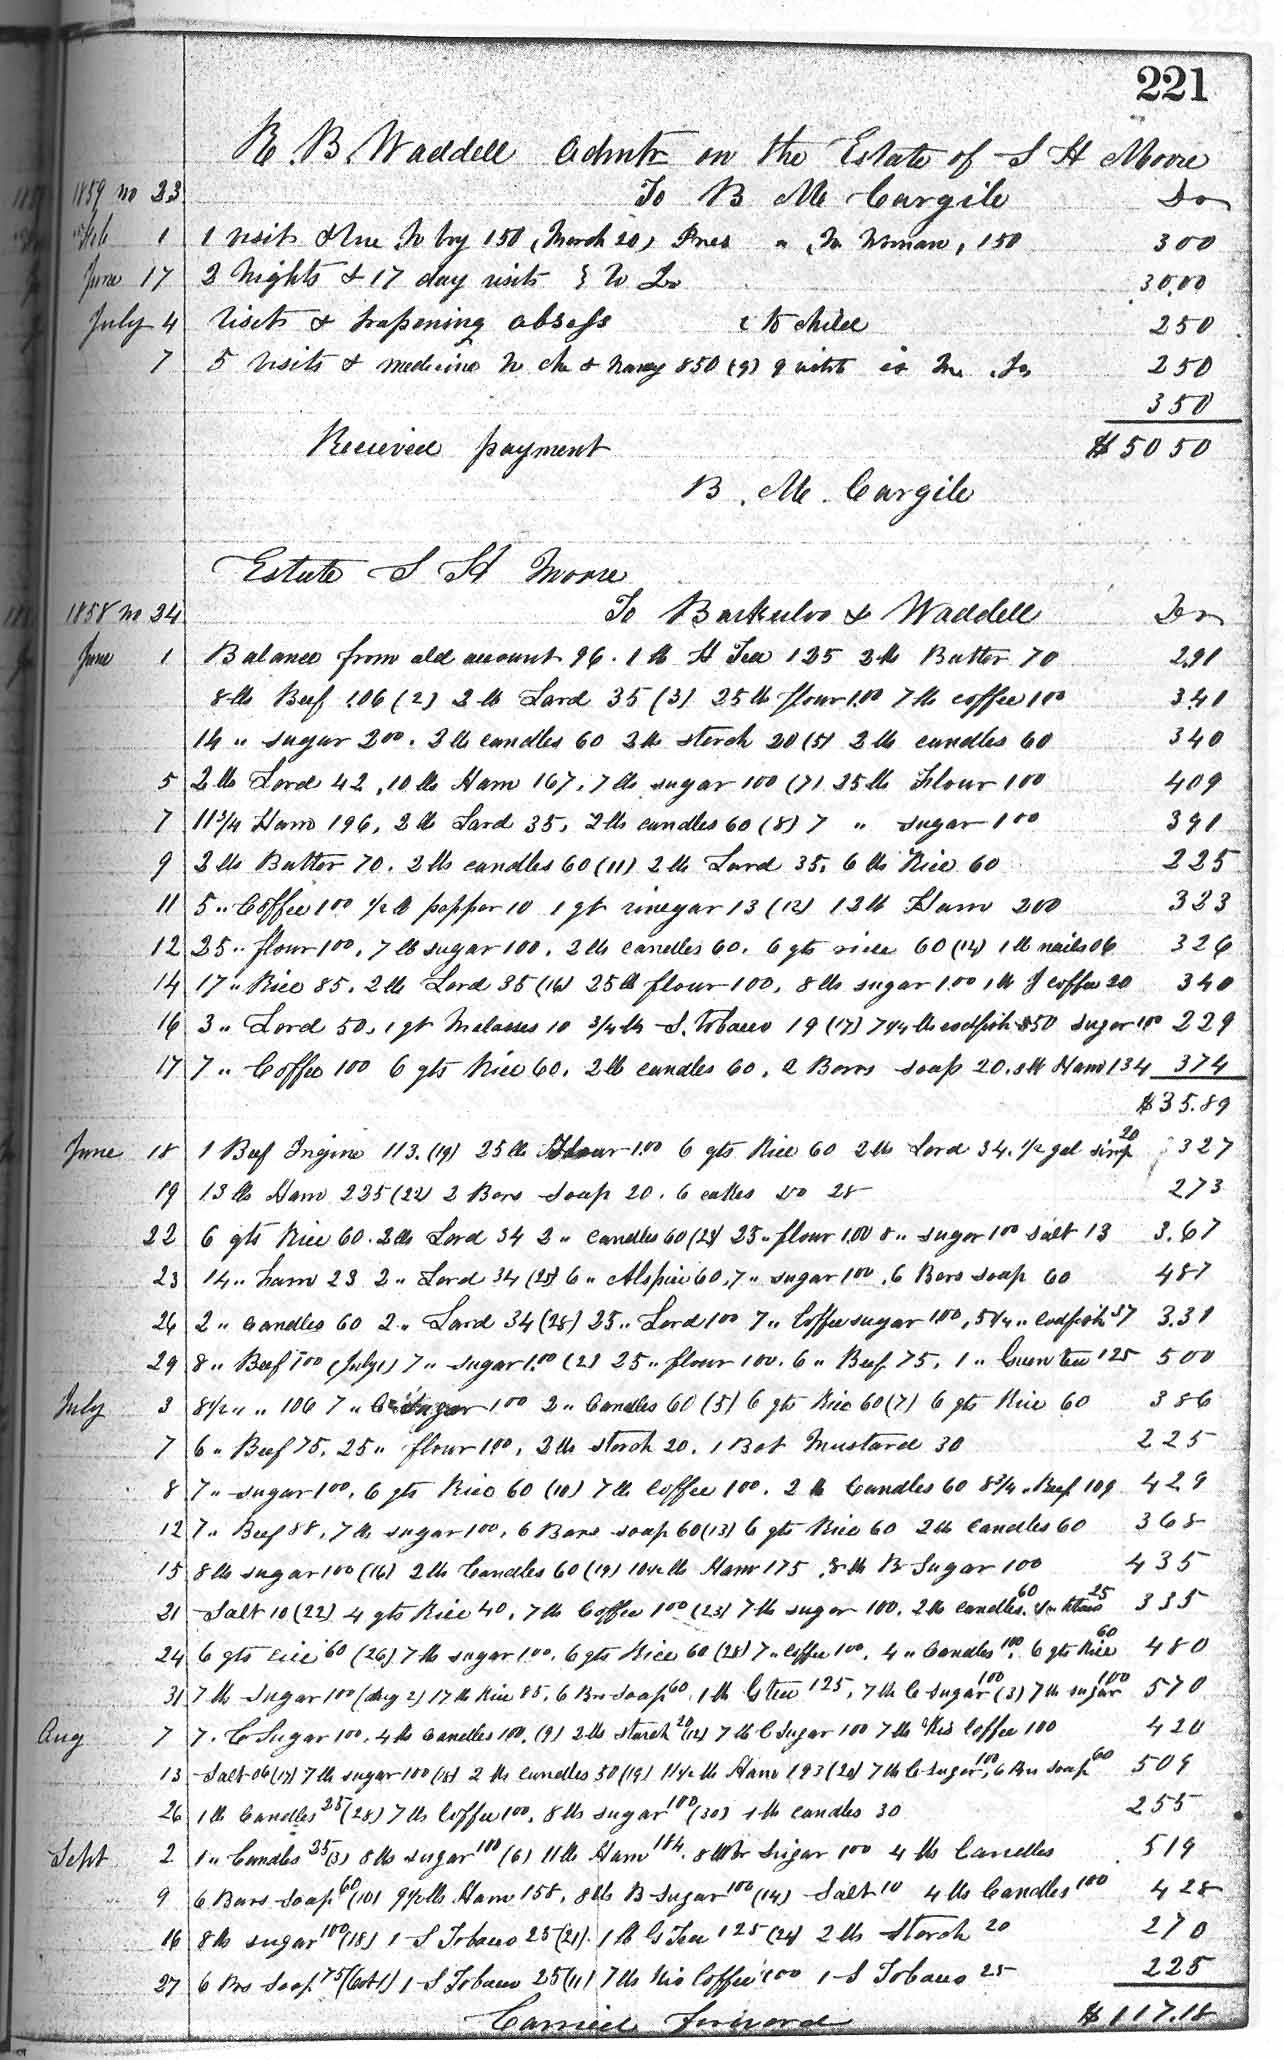 221
R. B. Waddell Admtr on the Estate of S H Moore
1859 no 23 To B M Cargile Dr
Feb 1 1 visit & to boy 150 (March 20) Pres " woman, 150 300
June 17 2 Nights & 17 day visits 30.00
July 4 Visit & abscess to child 250
7 5 visits & medicine to & Nancy 850 (9) visit 250
350
Recieved payment $5050
B. M. Cargile
Estate S H Moore
1858 no 24 To Barkuloo & Waddell Dr
June 1 Balance from old account 96. 1 lb H Tea 125 2 lb Butter 70 2.91
8 lb Beef 1.06 (2) 2 lb Lard 35 (3) 25 lb flour 1.00 7 lb coffee 100 3.41
14 " sugar 200. 2 lb candles 60 2 lb starch 20 (5) 2 lb candles 60 340
5 2 lb Lard 42, 10 lb Ham 167, 7 lb sugar 100 (7) 25 lb Flour 100 409
7 11 3/4 Ham 196, 2 lb Lard 35, 2 lb candles 60 (8) 7 " sugar 100 391
9 2 lb Butter 70. 2 lb candles 60 (11) 2 lb Lard 35, 6 lb Rice 60 225
11 5 " Coffee 100 1/2 lb pepper 10 1 qt vinegar 13 (12) 12 lb Ham 200 323
12 25 " flour 100, 7 lb sugar 100, 2 lb candles 60. 6 qts rice 60 (14) 1 lb nails 06 326
14 17 " Rice 85. 2 lb Lard 35 (16) 25 lb flour 100, 8 lb sugar 1.00 1 lb coffee 20 340
16 3 " Lard 50, 1 qt Molasses 10 3/4 lb S. Tobacco 19 (17) 7 1/4 lb codfish 50 sugar 100 229
17 7 " Coffee 100 6 qts Rice 60. 2 lb candles 60, 2 Barrs soap 20. 8 lb Ham 134 374
$35.89
June 18 1 Beef 113. (19) 25 lb Flour 1.00 6 qts Rice 60 2 lb Lard 34. 1/2 gal sirup 20 327
19 13 lb Ham 225 (22) 2 Bars soap 20. 6 cakes do 28 273
22 6 qts Rice 60. 2 lb Lard 34 2 " candles 60 (23) 25 " flour 1.00 8 " sugar 100 salt 13 3.67
23 14 " ham 23 2 " Lard 34 (25) 6 " Alspice 60, 7 " sugar 100, 6 Bars soap 60 487
26 2 " candles 60 2 " Lard 34 (28) 25 " Lard 100 7 " Coffee sugar 100, 5 1/4 " codfish 37 3.31
29 8 " Beef 100 (July 1) 7 " sugar 1.00 (2) 25 " flour 100. 6 " Beef 75, 1 " Green tea 125 500
July 3 8 1/2 " " 106 7 " C Sugar 100 2 " Candles 60 (5) 6 qts Rice 60 (7) 6 qts Rice 60 386
7 6 " Beef 75, 25 " flour 100, 2 lb starch 20. 1 Bot Mustard 30 225
8 7 " sugar 100, 6 qts Rice 60 (10) 7 lb Coffee 100. 2 lb Candles 60 8 3/4 " Beef 109 429
12 7 " Beef 88, 7 lb sugar 100, 6 Bars soap 60 (13) 6 qts Rice 60 2 lb Candles 60 368
15 8 lb sugar 100 (16) 2 lb Candles 60 (19) 10 1/2 lb Ham 175, 8 lb Br Sugar 100 435
21 Salt 10 (22) 4 qts Rice 40, 7 lb Coffee 100 (23) 7 lb sugar 100. 2 lb candles 60 25 335
24 6 qts rice 60 (26) 7 lb sugar 100, 6 qts Rice 60 (28) 7 " Coffee 100, 4 " Candles 100, 6 qts Rice 60 480
31 7 lb sugar 100 (Aug 2) 17 lb Rice 85, 6 Brs soap 60, 1 lb G tea 125, 7 lb C sugar 100 (3) 7 lb sugar 100 570
Aug 7 7 " C Sugar 100, 4 lb Candles 100, (9) 2 lb Starch 20 (12) 7 lb C Sugar 100 7 lb Rio Coffee 100 420
13 Salt 06 (17) 7 lb sugar 100 (18) 2 lb candles 50 (19) 11 1/2 lb Ham 193 (20) 7 lb C sugar 100, 6 Brs soap 60 509
26 1 lb Candles 25 (28) 7 lb Coffee 100, 8 lb sugar 100 (30) 1 lb candles 30 255
Sept 2 1 " Candles 35 (3) 8 lb sugar 100 (6) 11 lb Ham 184. 8 lb Br Sugar 100 4 lb Candles 519
9 6 Bars soap 60 (10) 9 1/2 lb Ham 158, 8 lb B Sugar 100 (14) Salt 10 4 lb Candles 100 428
16 8 lb sugar 100 (18) 1 S Tobacco 25 (21). 1 lb G Tea 125 (24) 2 lb starch 20 270
27 6 Brs Soap 75 (Oct 1) 1 S Tobacco 25 (11) 7 lb Rio Coffee 100 1 S Tobacco 25 225
Carried Forward $117.18